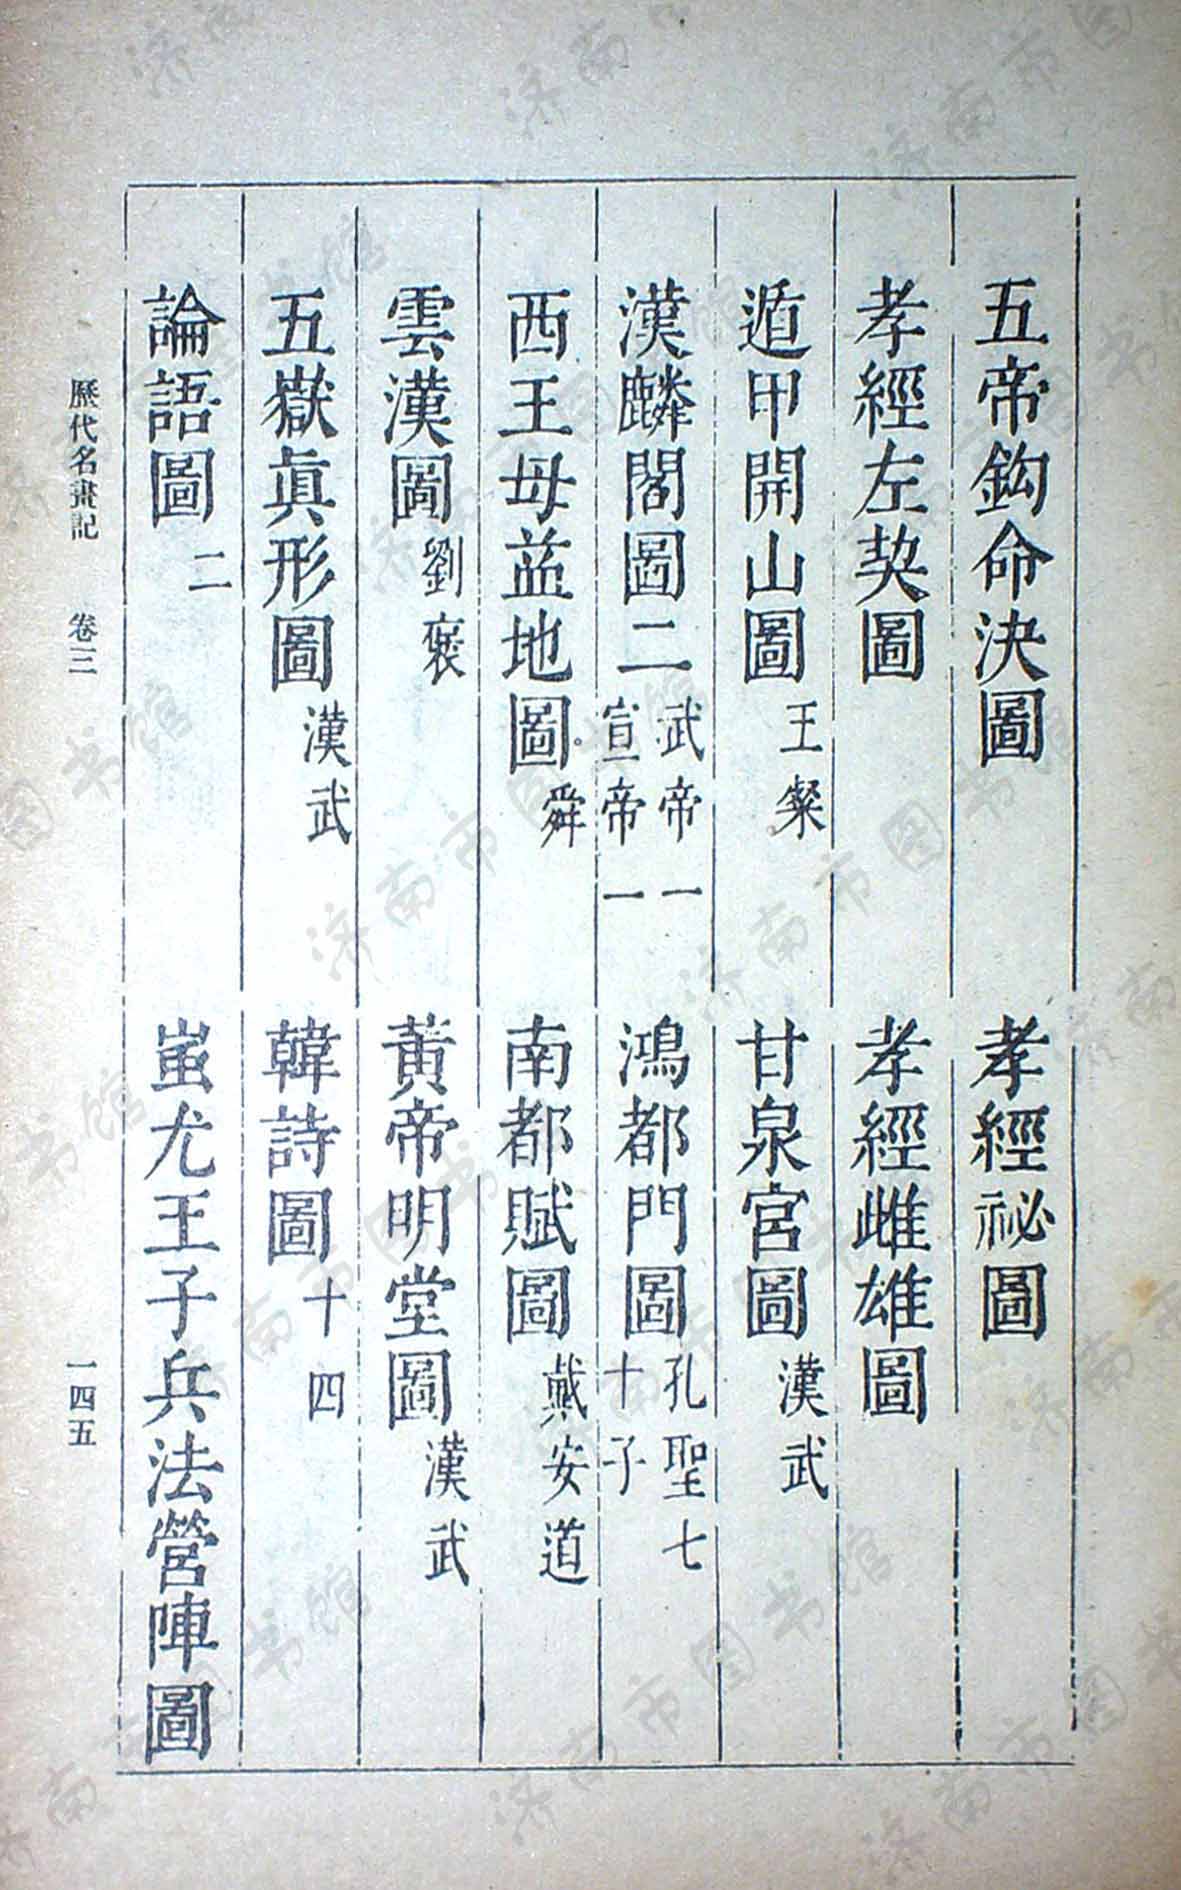 五帝鈎命决圖　孝經祕圖
孝經左契圖　孝經雌雄圖
遁甲開山圖 王粲　甘泉宮圖 漢武
漢麟閣圖二 武帝一 宣帝一　鴻都門圖 孔聖七十子
西王母益地圖 舜　南都賦圖 戴安道
雲漢圖 劉褒　黃帝明堂圖 漢武
五嶽眞形圖 漢武　韓詩圖 十四
論語圖 二　蚩尤王子兵法營陣圖
歷代名畫記　卷三　一四五
济南市图书馆